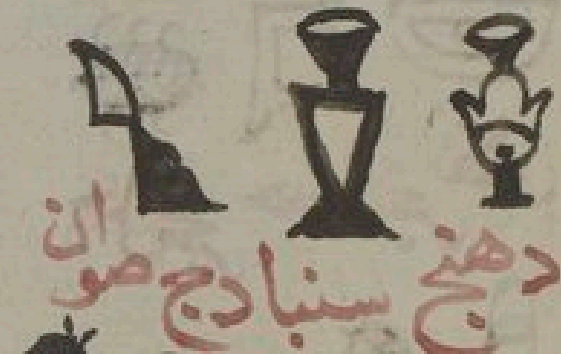 دهنج سنبادج صوان